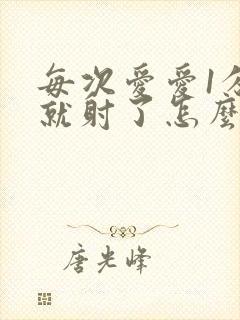 每次愛愛1分
就射了怎麼
唐光峰